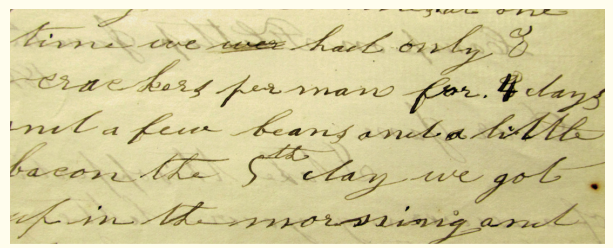 one
time we ~~wer~~ had only 8
crackers per man for. 4 days
and a few beans and a little
bacon the 5th day we got
up in the morning and